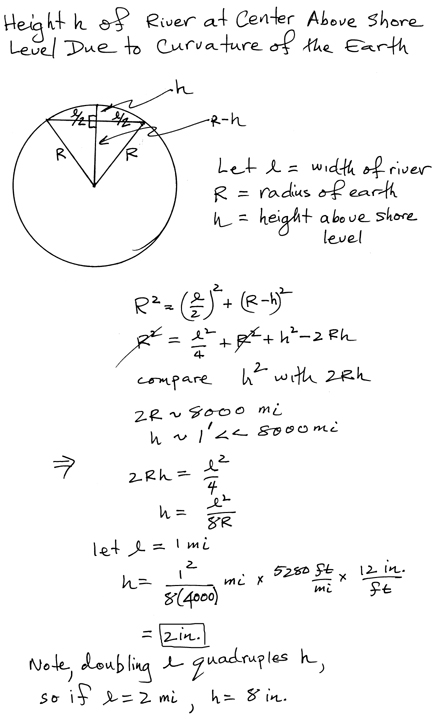 Height h of River at Center Above Shore
Level Due to Curvature of the Earth
h
l/2 l/2
R-h
R R
Let l = width of river
R = radius of earth
h = height above shore
level
R² = (l/2)² + (R-h)²
R² = l²/4 + R² + h² - 2Rh
compare h² with 2Rh
2R ~ 8000 mi
h ~ 1' << 8000 mi
⇒ 2Rh = l²/4
h = l²/8R
let l = 1 mi
h = 1²/8(4000) mi × 5280 ft/mi × 12 in./ft
= 2 in.
Note, doubling l quadruples h,
so if l = 2 mi, h = 8 in.